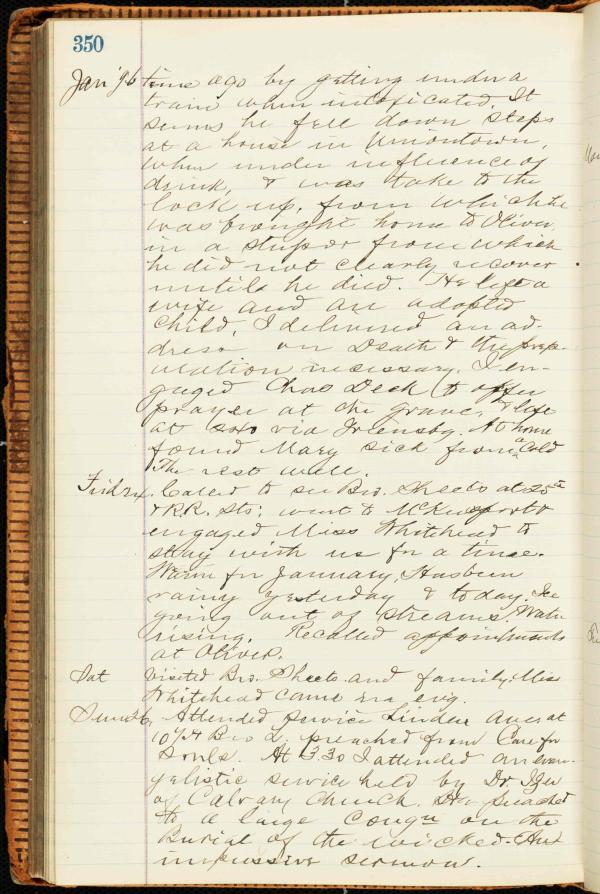 350
Jan '96 time ago by getting under a
train when intoxicated. It
seems he fell down steps
at a house in Uniontown,
when under influence of
drink, & was take to the
lock up, from which he
was brought home to Oliver,
in a stupor from which
he did not clearly recover
untill he died. He left a
wife and an adopted
child. I delivered an ad-
dress on Death & the prep-
eration necessary. I en-
gaged Chas Deck to offer
prayer at the grave, & left
at via Greensbg. At home
found Mary sick from a Cold
The rest well.
Frid 24. Called to see Bro. Sheets at 25th
& R.R. Sts; went to McKeesport &
engaged Miss Whitehead to
stay with us for a time.
Warm for January, Has been
rainy yesterday & today. Ice
going out of streams. Water
rising. Recalled appointments
at Oliver.
Sat Visited Bro. Sheets and family. Miss
Whitehead came evg.
Sund 26, Attended service Linden Ave at
10 3/4 Bro L. preached from Care for
Souls. At 3.30 I attended an evan-
gelistic service held by Dr.
of Calvary Church. preached
to a large Congn on the
Burial of the wicked. An
impressive sermon.